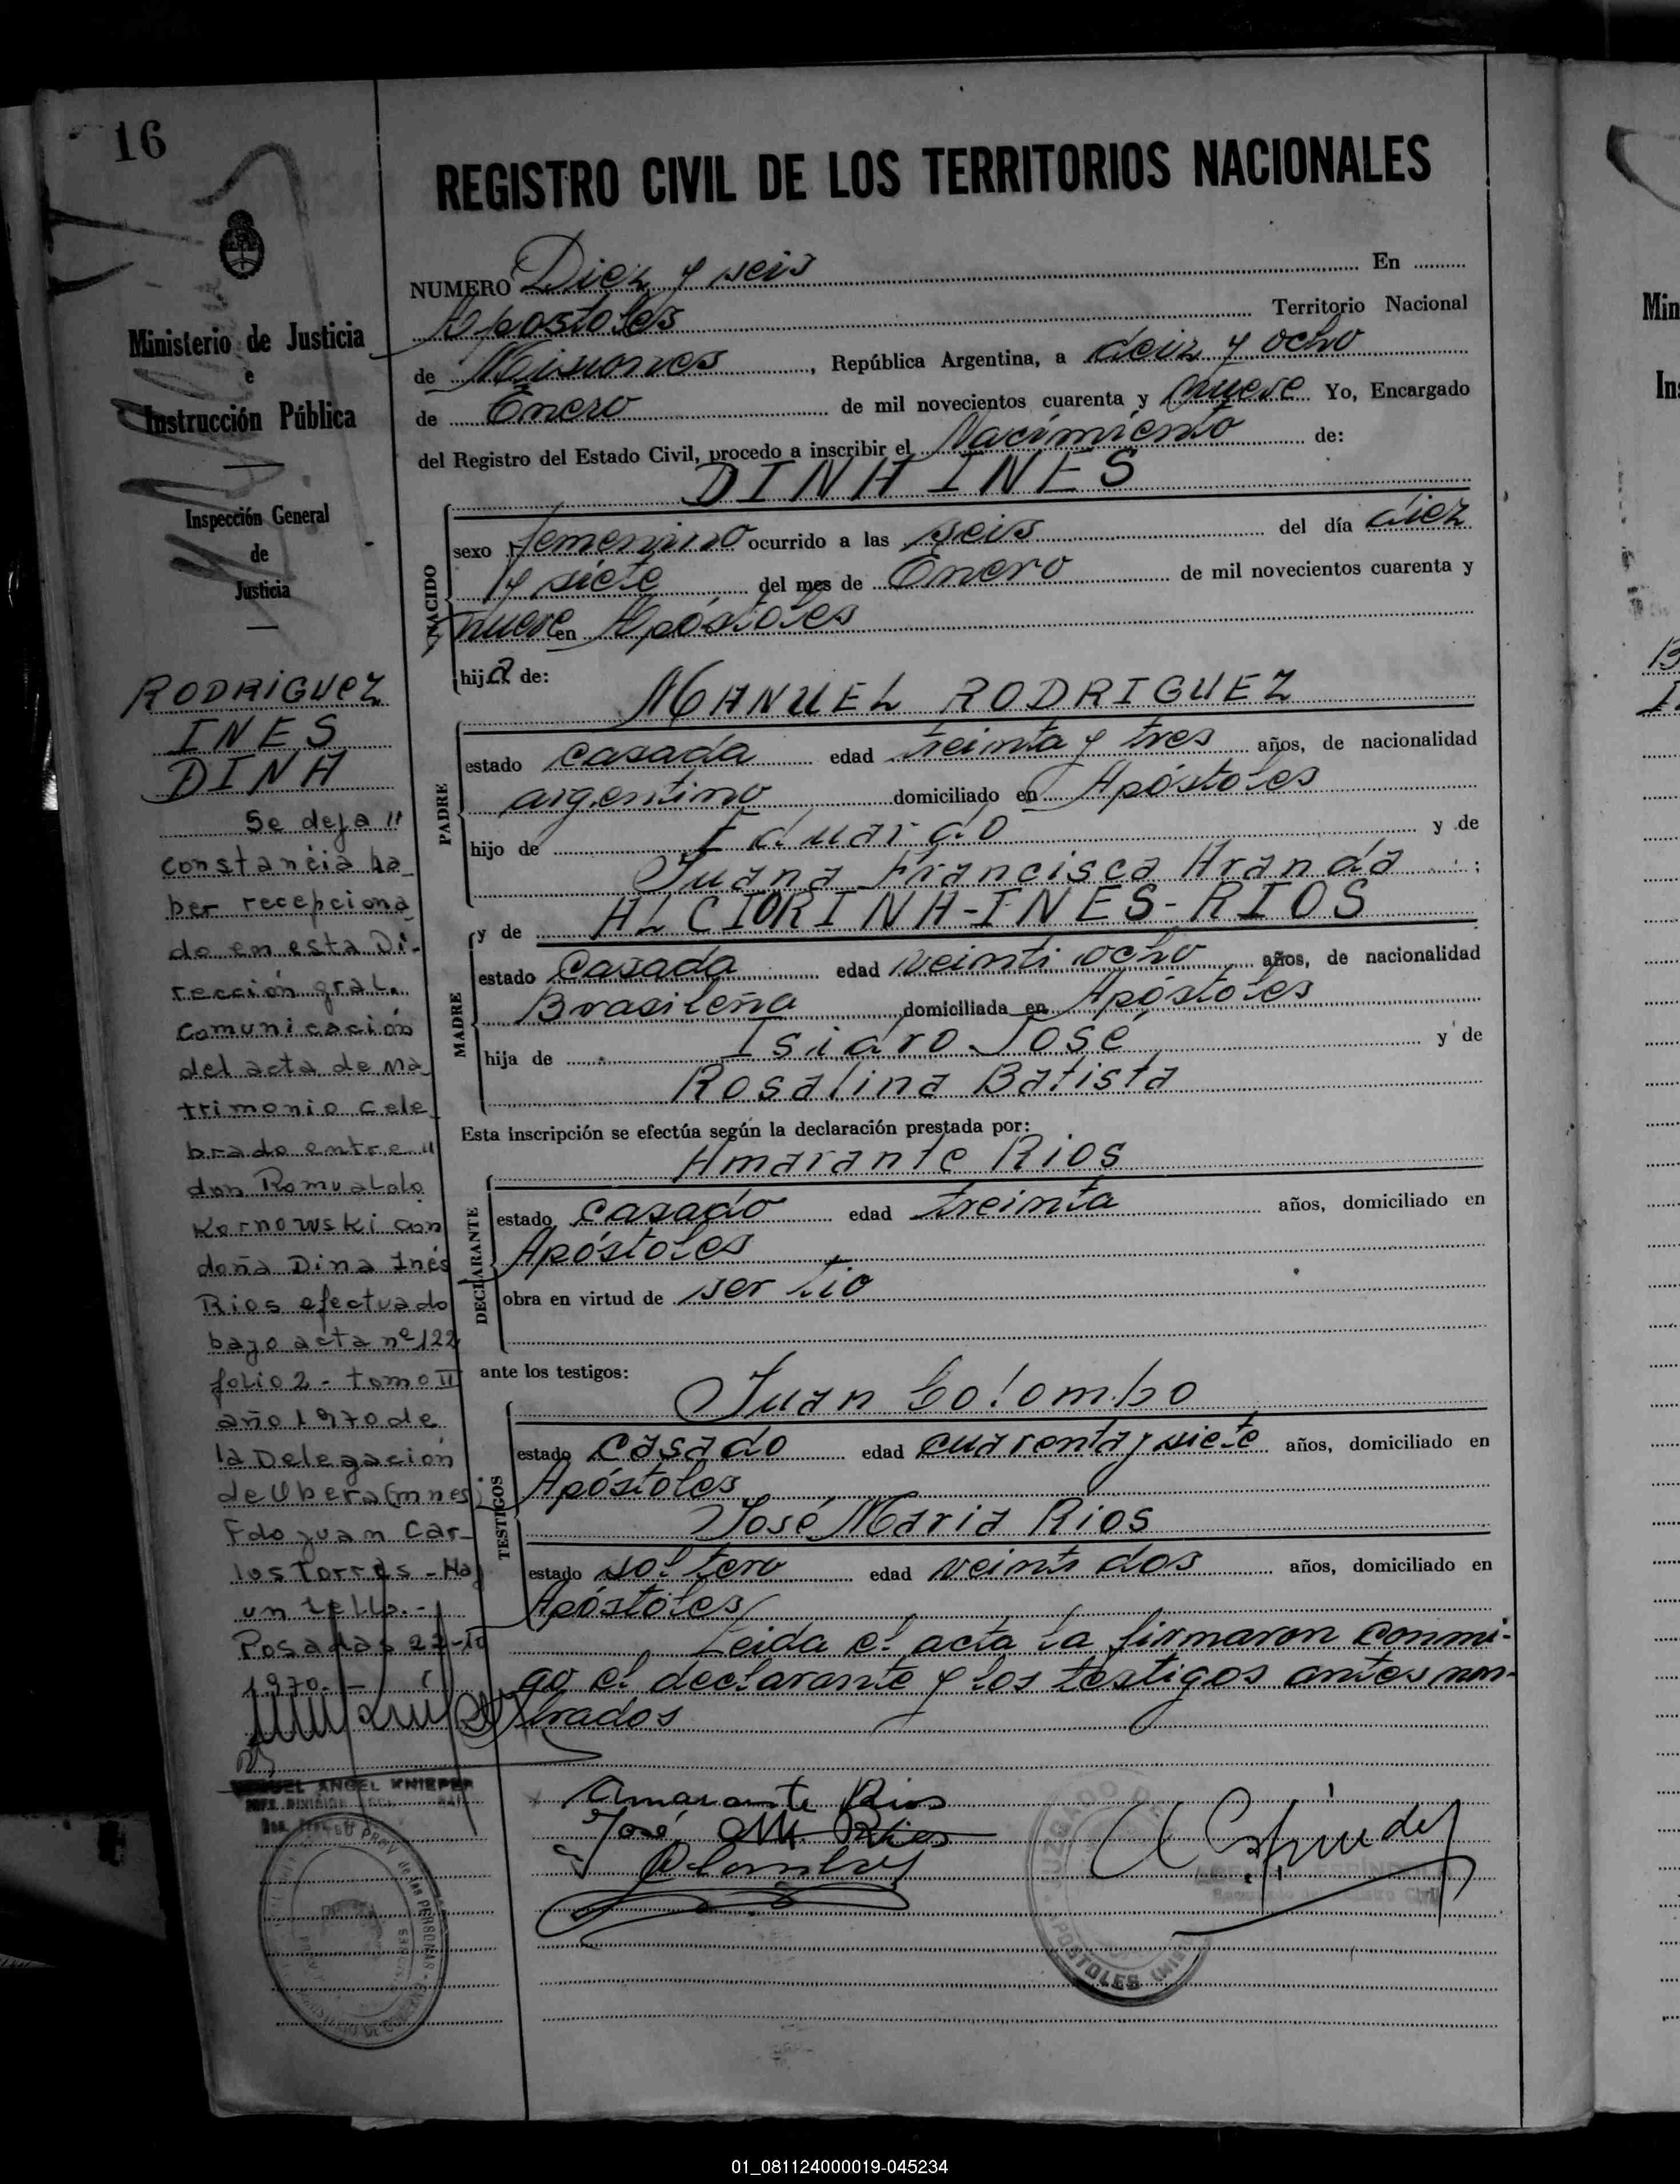 16
REGISTRO CIVIL DE LOS TERRITORIOS NACIONALES
Ministerio de Justicia
e
Instrucción Pública
Inspección General
de
Justicia
RODRIGUEZ
INES
DINA
Se deja "
constancia ha_
ber recepciona_
do en esta Di-
rección gral.
comunicación
del acta de ma_
trimonio cele_
brado entre "
don Romualdo
Kornowski con
doña Dina Inés
Rios efectuado
bajo acta nº 122
folio 2 - tomo II
año 1970 de
la Delegación
de Obera (mnes)
Fdo Juan Car_
los Torres - Ha
un sello.-
Posadas
1970.-
ANGEL KNIEPER
NUMERO Diez y seis En
Apostoles Territorio Nacional
de Misiones, República Argentina, a deiz y ocho
de Enero de mil novecientos cuarenta y nueve Yo, Encargado
del Registro del Estado Civil, procedo a inscribir el Nacimiento de:
DINA INES
NACIDO
sexo femenino ocurrido a las seis del día diez
y siete del mes de Enero de mil novecientos cuarenta y
nueve en Apóstoles
hija de:
MANUEL RODRIGUEZ
PADRE
estado casada edad treinta y tres años, de nacionalidad
argentino domiciliado en Apóstoles
hijo de Eduardo y de
Juana Francisca Aranda ;
y de ALCIORINA-INES-RIOS
MADRE
estado Casada edad veinti ocho años, de nacionalidad
Brasileña domiciliada en Apóstoles
hija de Isidro José y de
Rosalina Batista
Esta inscripción se efectúa según la declaración prestada por:
Amarante Rios
DECLARANTE
estado casado edad treinta años, domiciliado en
Apóstoles
obra en virtud de ser tio
ante los testigos:
Juan Colombo
TESTIGOS
estado casado edad cuarenta y siete años, domiciliado en
Apóstoles
José Maria Rios
estado soltero edad veinti dos años, domiciliado en
Apóstoles
Leida el acta la firmaron conmi-
go el declarante y los testigos antes nom-
brados
Amarante Rios
José M. Rios
JUZGADO DE
APOSTOLES
01_081124000019-045234